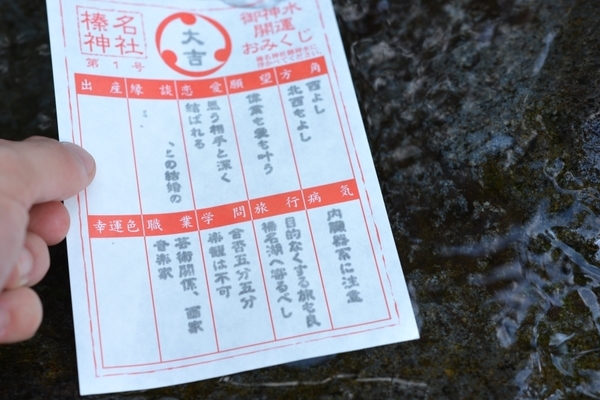 榛名
神社
第1号
大吉
御神水
開運
おみくじ
榛名神社御神水に
浸かべてください。
方角
西よし
北西もよし
願望
恋愛
思う相手と深く
結ばれる
縁談
この結婚の
出産
病気
内臓器系に注意
旅行
目的なくする旅も良
榛名湖へ寄るべし
学問
合否五分五分
楽観は不可
職業
芸術関係、画家
音楽家
幸運色